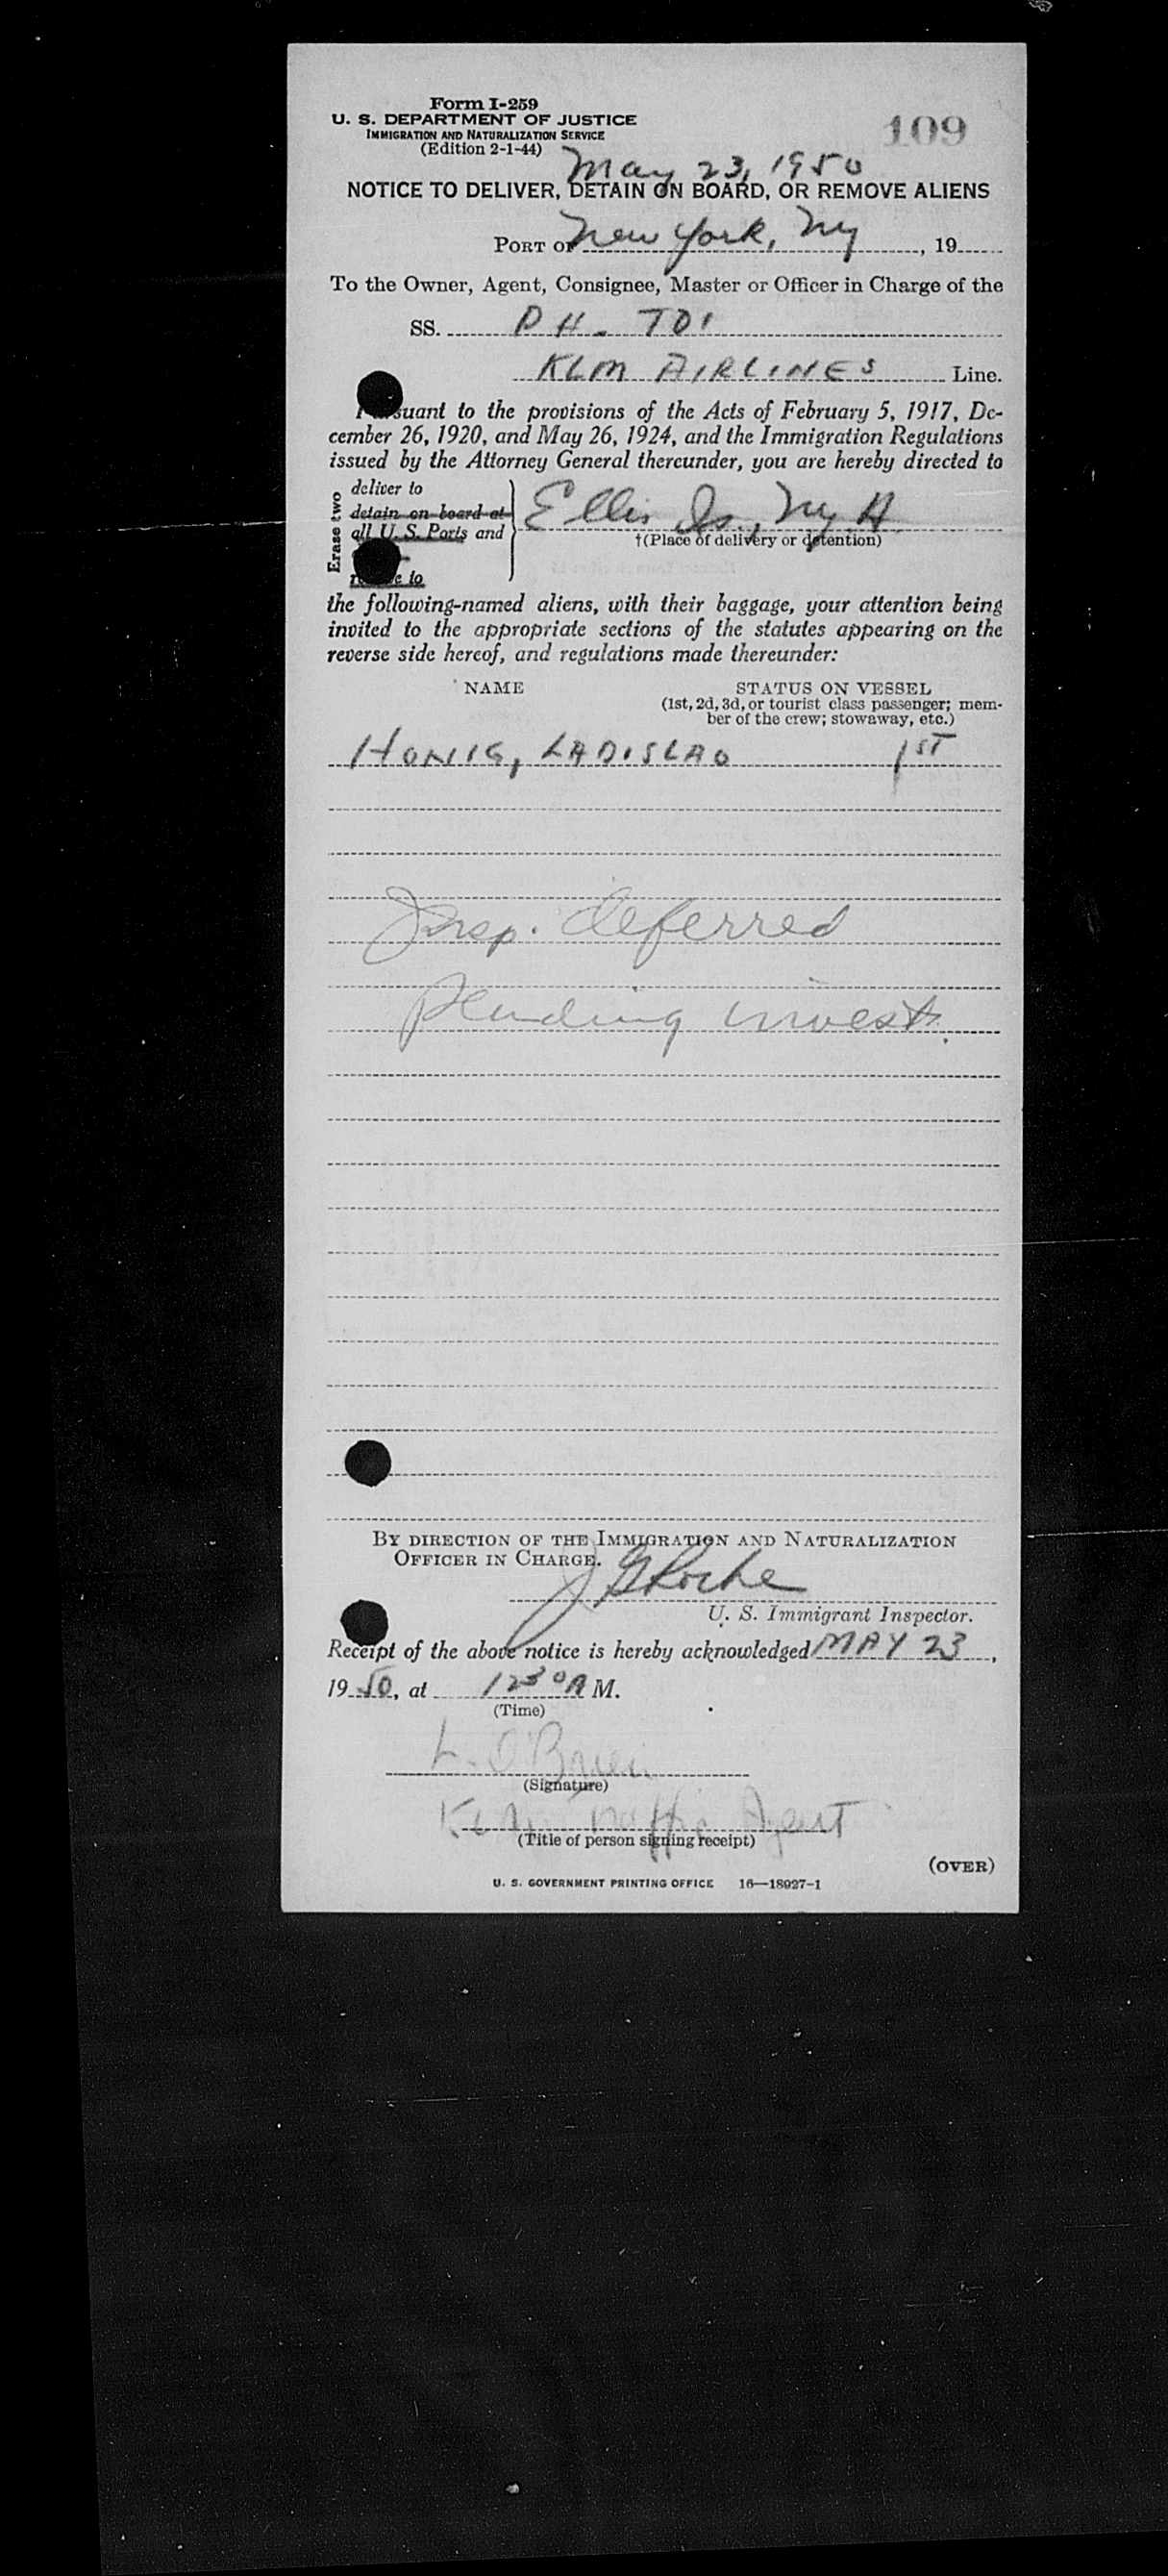 Form I-259
U. S. DEPARTMENT OF JUSTICE
IMMIGRATION AND NATURALIZATION SERVICE
(Edition 2-1-44)
109
May 23, 1950
NOTICE TO DELIVER, DETAIN ON BOARD, OR REMOVE ALIENS
PORT OF New York, Ny, 19
To the Owner, Agent, Consignee, Master or Officer in Charge of the
SS. PH-TDI
KLM AIRLINES Line.
suant to the provisions of the Acts of February 5, 1917, De-
cember 26, 1920, and May 26, 1924, and the Immigration Regulations
issued by the Attorney General thereunder, you are hereby directed to
Erase two
deliver to
detain on board at
all U. S. Ports and
to
Ellis Is., Ny H
†(Place of delivery or detention)
the following-named aliens, with their baggage, your attention being
invited to the appropriate sections of the statutes appearing on the
reverse side hereof, and regulations made thereunder:
NAME
STATUS ON VESSEL
(1st, 2d, 3d, or tourist class passenger; mem-
ber of the crew; stowaway, etc.)
HONIG, LADISLAO 1ST
Insp. deferred
pending invest.
BY DIRECTION OF THE IMMIGRATION AND NATURALIZATION
OFFICER IN CHARGE.
J G Roche
U. S. Immigrant Inspector.
Receipt of the above notice is hereby acknowledged MAY 23,
1950, at 1230 A M.
(Time)
L. O'Brien
(Signature)
Agent
(Title of person signing receipt)
(OVER)
U. S. GOVERNMENT PRINTING OFFICE 16—18027-1